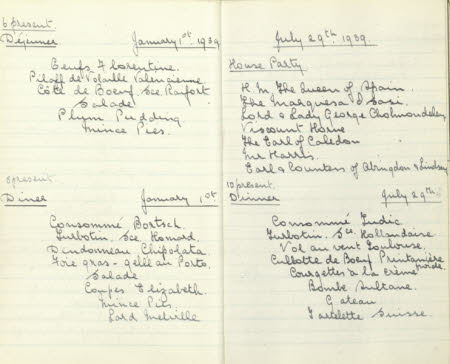 6 present
Déjeuner January 1st 1939
Oeufs Florentine.
Pilaff de Volaille Valencienne
Côte de Boeuf Sce Raifort
Salade
Plum Pudding
Mince Pies.
8 present
Diner January 1st
Consommé Bortsch.
Turbotin. Sce. Homard.
Dindonneau Chipolata.
Foie gras - gelée au Porto.
Salade
Coupes Elizabeth.
Mince Pies.
Lord Melville
July 29th 1939.
House Party
H. M. The Queen of Spain.
The Marquesa D
Lord & Lady George Cholmondeley
Viscount Horne
The Earl of Caledon
Mr Harris.
Earl & Countess of Abingdon & Lindsey
10 present.
Dinner July 29th
Consommé Judic.
Turbotin. Sce Hollandaise
Vol au vent Toulouse.
Culotte de Boeuf Printanière
froide.
Courgettes à la crème
Bombe Sultane.
Gateau
Tartelette Suisse.